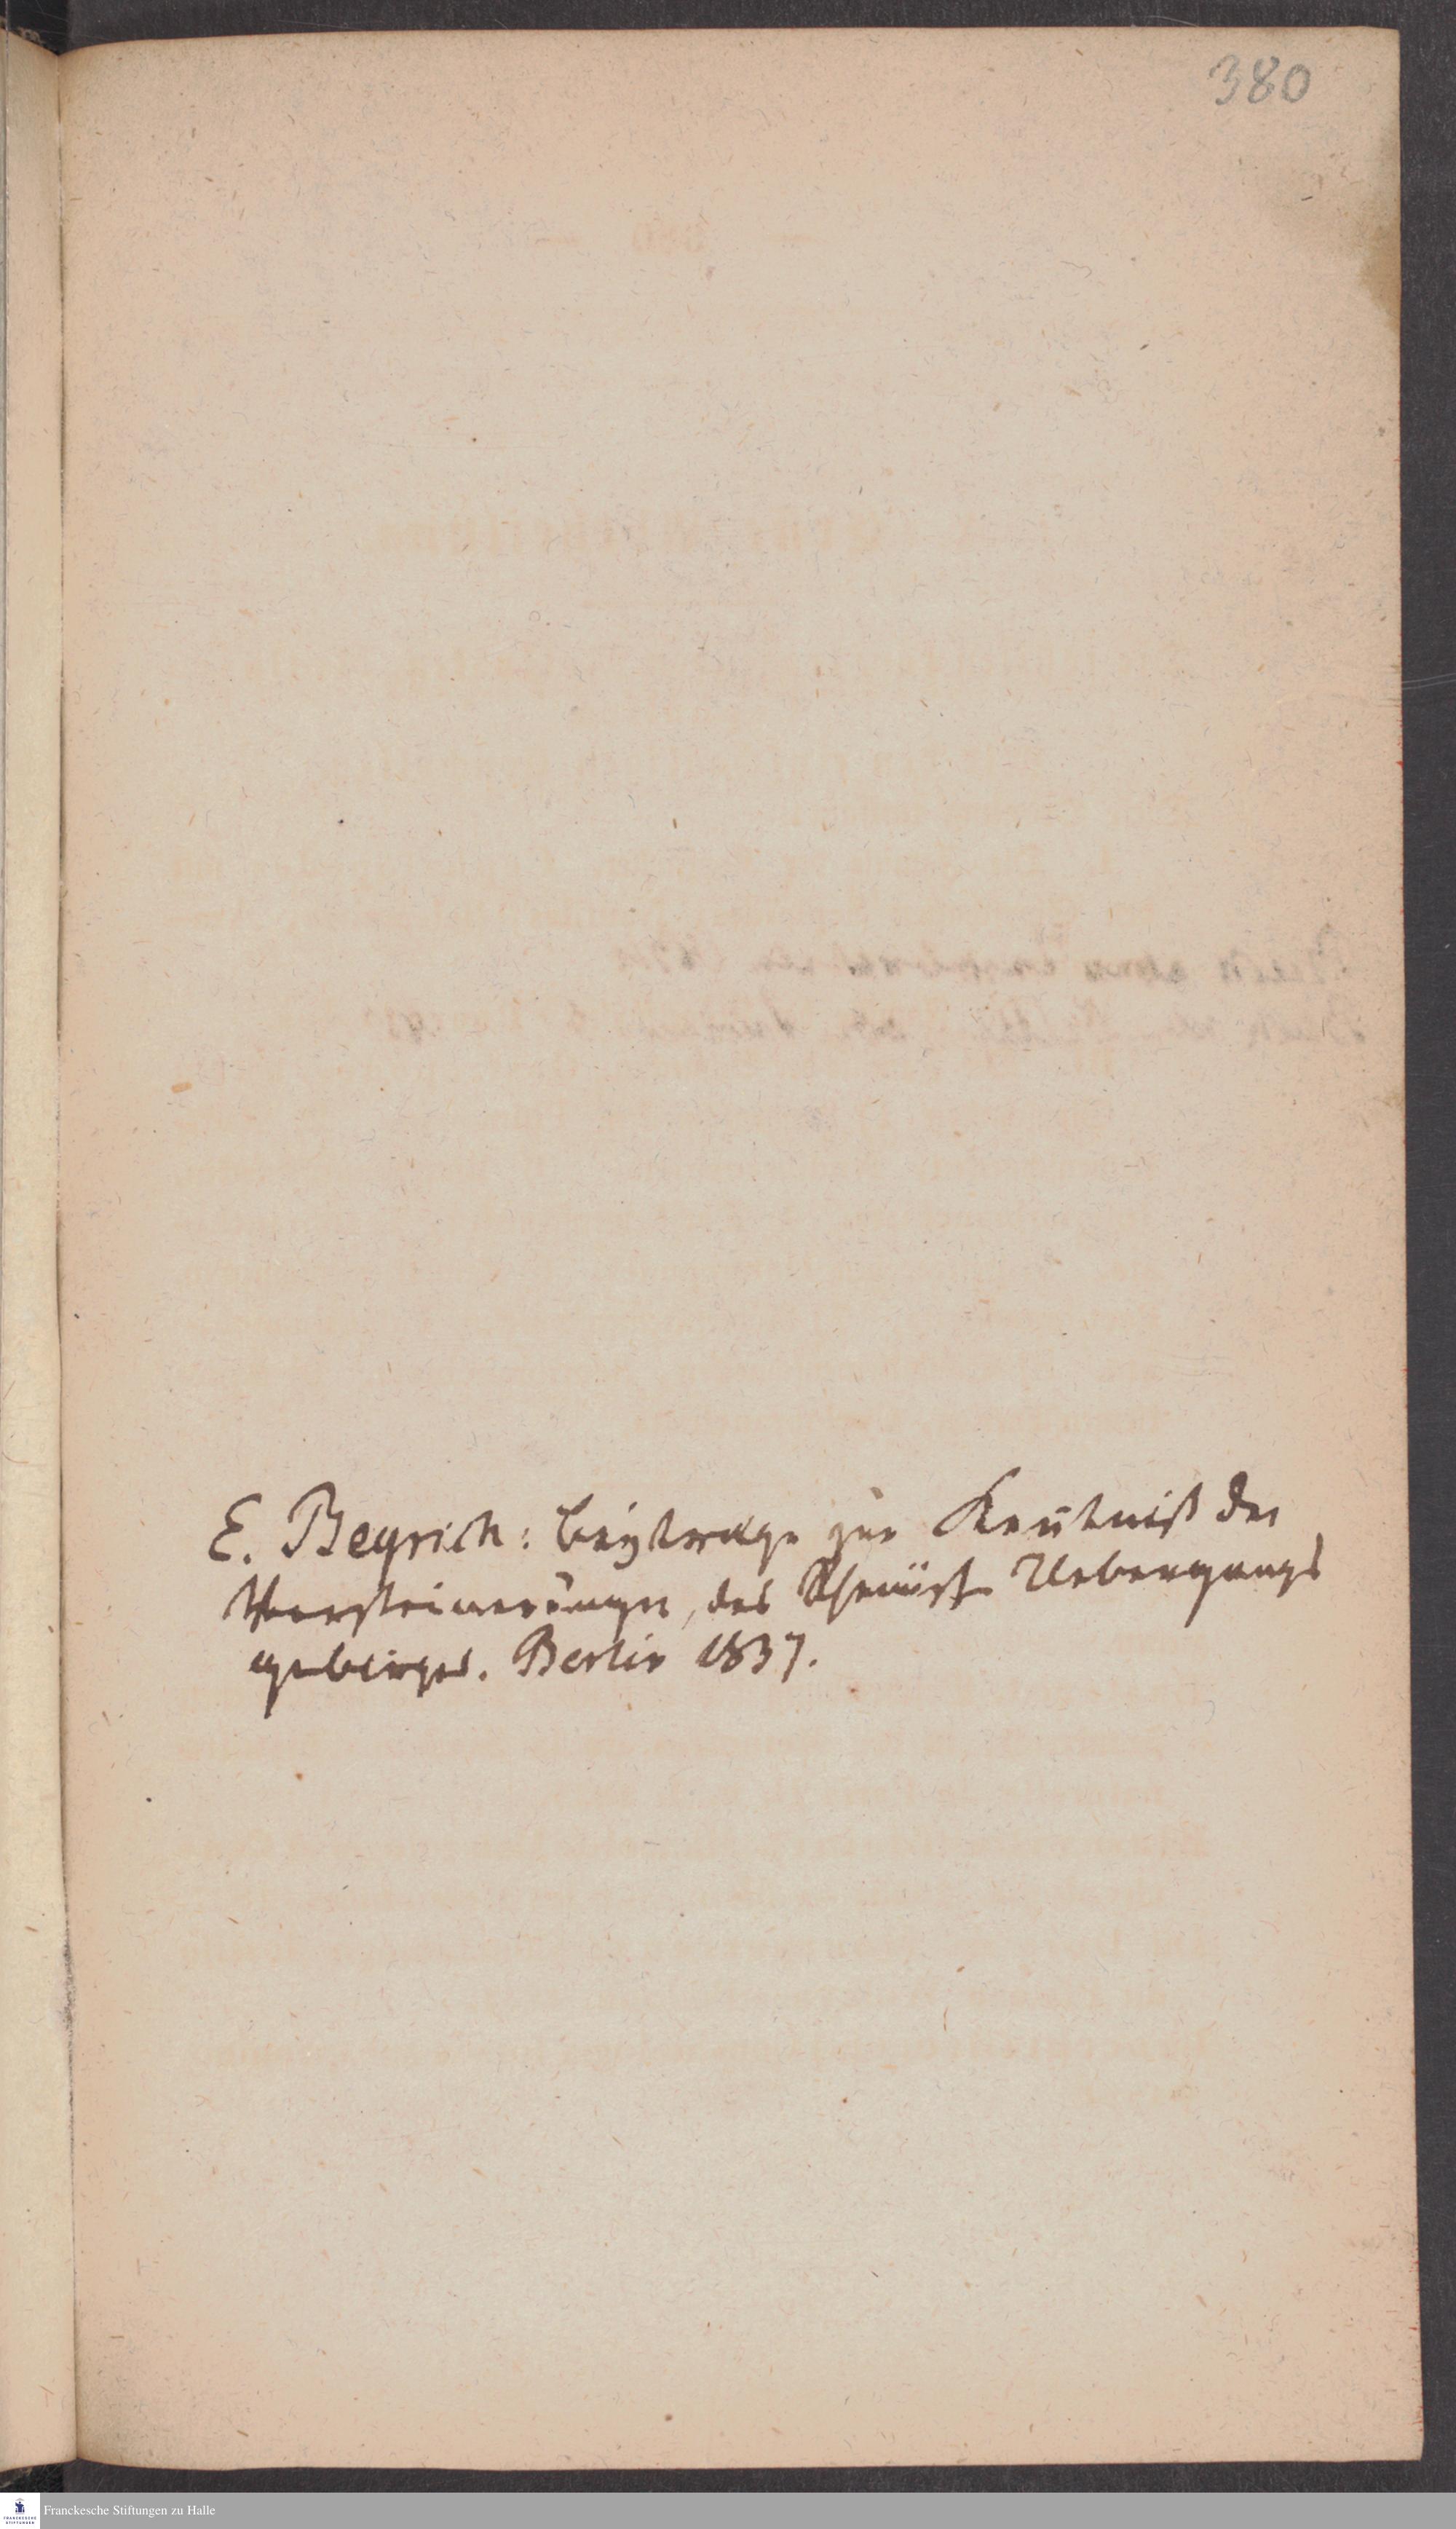 380
E. Beyrich: Beyträge zur Kentniß der
Versteinerungen, des Rheinisch Uebergangs
gebirges. Berlin 1837.
FRANCKESCHE
STIFTUNGEN
Franckesche Stiftungen zu Halle